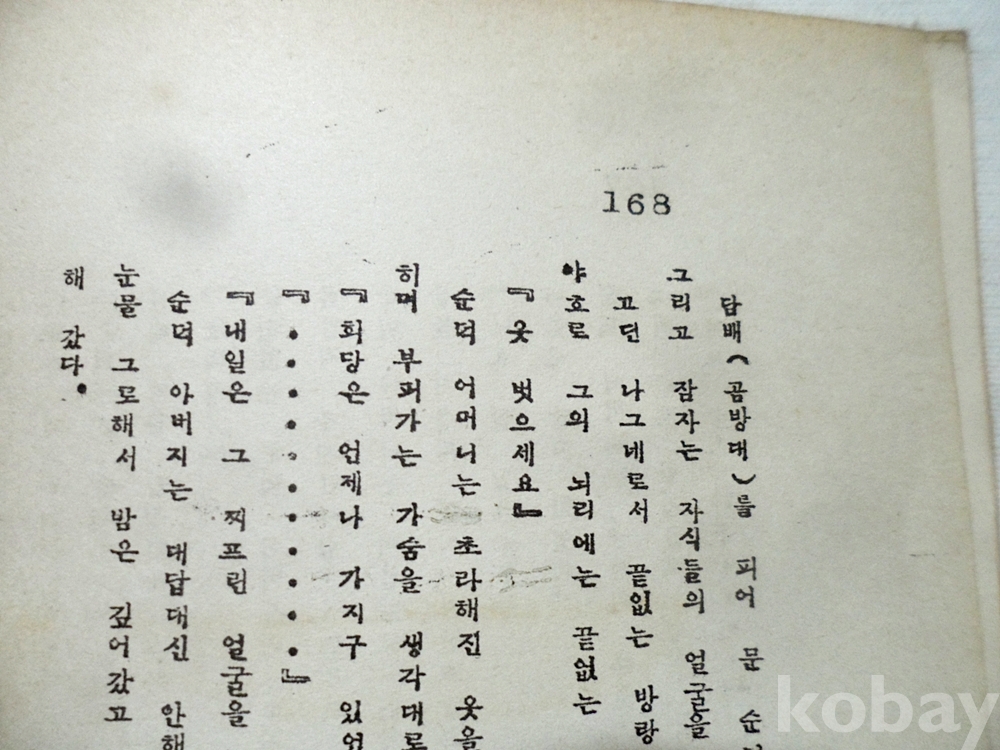 168
담배(곰방대)를 피어 문
그리고 잠자는 자식들의 얼굴을
고던 나그네로서 끝없는 방랑
야흐로 그의 뇌리에는 끝없는
『옷 벗으세요』
순덕 어머니는 초라해진 옷을
히며 부퍼가는 가슴을 생각대로
『희당은 언제나 가지구 있었
『••••••••••』
『내일은 그 찌프린 얼굴을
순덕 아버지는 대답대신 안해
눈물 그로해서 밤은 깊어갔고
해 갔다.
kobay